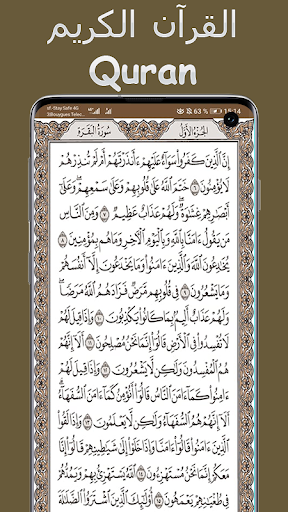 القرآن الكريم
Quran
of-Stay Safe 4G
3Bouygues Telec...
63 % 15:14
الجزء الأول
سورة البقرة
إِنَّ ٱلَّذِينَ كَفَرُوا۟ سَوَآءٌ عَلَيْهِمْ ءَأَنذَرْتَهُمْ أَمْ لَمْ تُنذِرْهُمْ
لَا يُؤْمِنُونَ ٦ خَتَمَ ٱللَّهُ عَلَىٰ قُلُوبِهِمْ وَعَلَىٰ سَمْعِهِمْ ۖ وَعَلَىٰٓ
أَبْصَٰرِهِمْ غِشَٰوَةٌ ۖ وَلَهُمْ عَذَابٌ عَظِيمٌ ٧ وَمِنَ ٱلنَّاسِ
مَن يَقُولُ ءَامَنَّا بِٱللَّهِ وَبِٱلْيَوْمِ ٱلْءَاخِرِ وَمَا هُم بِمُؤْمِنِينَ ٨
يُخَٰدِعُونَ ٱللَّهَ وَٱلَّذِينَ ءَامَنُوا۟ وَمَا يَخْدَعُونَ إِلَّآ أَنفُسَهُمْ
وَمَا يَشْعُرُونَ ٩ فِى قُلُوبِهِم مَّرَضٌ فَزَادَهُمُ ٱللَّهُ مَرَضًا ۖ
وَلَهُمْ عَذَابٌ أَلِيمٌۢ بِمَا كَانُوا۟ يَكْذِبُونَ ١٠ وَإِذَا قِيلَ لَهُمْ
لَا تُفْسِدُوا۟ فِى ٱلْأَرْضِ قَالُوٓا۟ إِنَّمَا نَحْنُ مُصْلِحُونَ ١١ أَلَآ إِنَّهُمْ
هُمُ ٱلْمُفْسِدُونَ وَلَٰكِن لَّا يَشْعُرُونَ ١٢ وَإِذَا قِيلَ لَهُمْ
ءَامِنُوا۟ كَمَآ ءَامَنَ ٱلنَّاسُ قَالُوٓا۟ أَنُؤْمِنُ كَمَآ ءَامَنَ ٱلسُّفَهَآءُ ۗ
أَلَآ إِنَّهُمْ هُمُ ٱلسُّفَهَآءُ وَلَٰكِن لَّا يَعْلَمُونَ ١٣ وَإِذَا لَقُوا۟
ٱلَّذِينَ ءَامَنُوا۟ قَالُوٓا۟ ءَامَنَّا وَإِذَا خَلَوْا۟ إِلَىٰ شَيَٰطِينِهِمْ قَالُوٓا۟ إِنَّا
مَعَكُمْ إِنَّمَا نَحْنُ مُسْتَهْزِءُونَ ١٤ ٱللَّهُ يَسْتَهْزِئُ بِهِمْ وَيَمُدُّهُمْ
فِى طُغْيَٰنِهِمْ يَعْمَهُونَ ١٥ أُو۟لَٰٓئِكَ ٱلَّذِينَ ٱشْتَرَوُا۟ ٱلضَّلَٰلَةَ